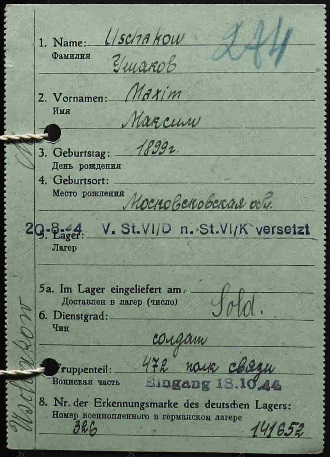 Uschakow
1. Name:
274
Фамилия
Ушаков
2. Vornamen: Maxim
Имя
Максим
3. Geburtstag: 1899г.
День рождения
4. Geburtsort:
Место рождения
Московсковская обл.
20-8-44 V. St.VI/D n. St.VI/K versetzt
5. Lager:
Лагер
5a. Im Lager eingeliefert am
Доставлен в лагер (число)
6. Dienstgrad: Sold.
Чин
солдат
Truppenteil: 472 полк связи
Воинская часть Eingang 18.10.44
8. Nr. der Erkennungsmarke des deutschen Lagers:
Номер военнопленного в германском лагере
326 141652
Uschakow